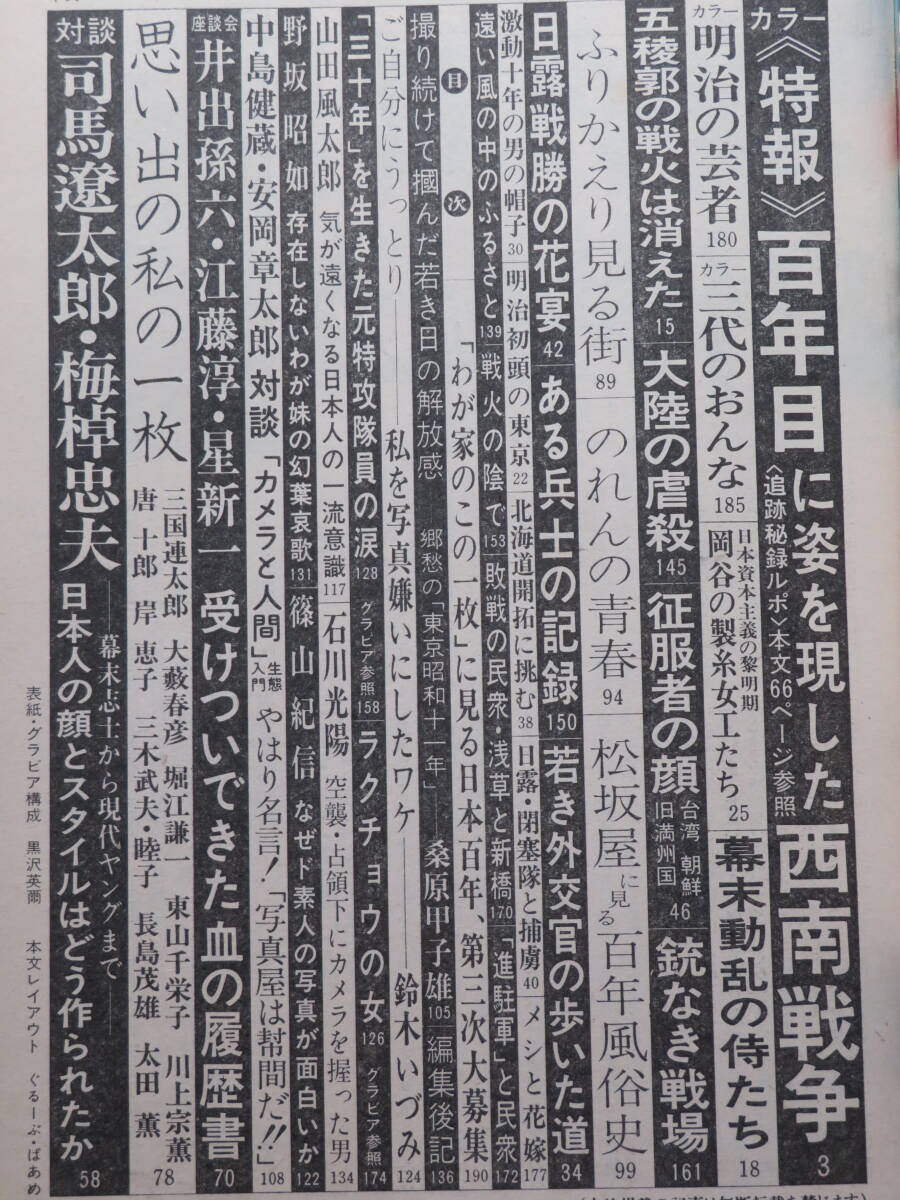 カラー《特報》百年目に姿を現した西南戦争 3
〈追跡秘録ルポ〉本文66ページ参照
カラー 明治の芸者 180 カラー 三代のおんな 185 日本資本主義の黎明期 岡谷の製糸女工たち 25 幕末動乱の侍たち 18
五稜郭の戦火は消えた 15 大陸の虐殺 145 征服者の顔 台湾 朝鮮 旧満州国 46 銃なき戦場 161
ふりかえり見る街 89 のれんの青春 94 松坂屋に見る百年風俗史 99
日露戦勝の花宴 42 ある兵士の記録 150 若き外交官の歩いた道 34
激動十年の男の帽子 30 明治初頭の東京 22 北海道開拓に挑む 38 日露・閉塞隊と捕虜 40 メシと花嫁 177
遠い風の中のふるさと 139 戦火の陰で 153 敗戦の民衆・浅草と新橋 170 「進駐軍」と民衆 172
目次 「わが家のこの一枚」に見る日本百年、第三次大募集 190
撮り続けて摑んだ若き日の解放感 郷愁の「東京昭和十一年」――桑原甲子雄 105 編集後記 136
ご自分にうっとり――私を写真嫌いにしたワケ――鈴木いづみ 124
「三十年」を生きた元特攻隊員の涙 128 グラビア参照 158 ラクチョウの女 126 グラビア参照 174
山田風太郎 気が遠くなる日本人の一流意識 117 石川光陽 空襲・占領下にカメラを握った男 134
野坂昭如 存在しないわが妹の幻葉哀歌 131 篠山紀信 なぜド素人の写真が面白いか 122
中島健蔵・安岡章太郎 対談「カメラと人間」生態入門 やはり名言!「写真屋は幇間だ!!」 108
座談会 井出孫六・江藤淳・星新一 受けついできた血の履歴書 70
思い出の私の一枚 三国連太郎 大藪春彦 堀江謙一 東山千栄子 川上宗薫
唐十郎 岸恵子 三木武夫・睦子 長島茂雄 太田薫 78
対談 司馬遼太郎・梅棹忠夫――幕末志士から現代ヤングまで―― 日本人の顔とスタイルはどう作られたか 58
表紙・グラビア構成 黒沢英爾 本文レイアウト ぐるーぷ・ぱあめ